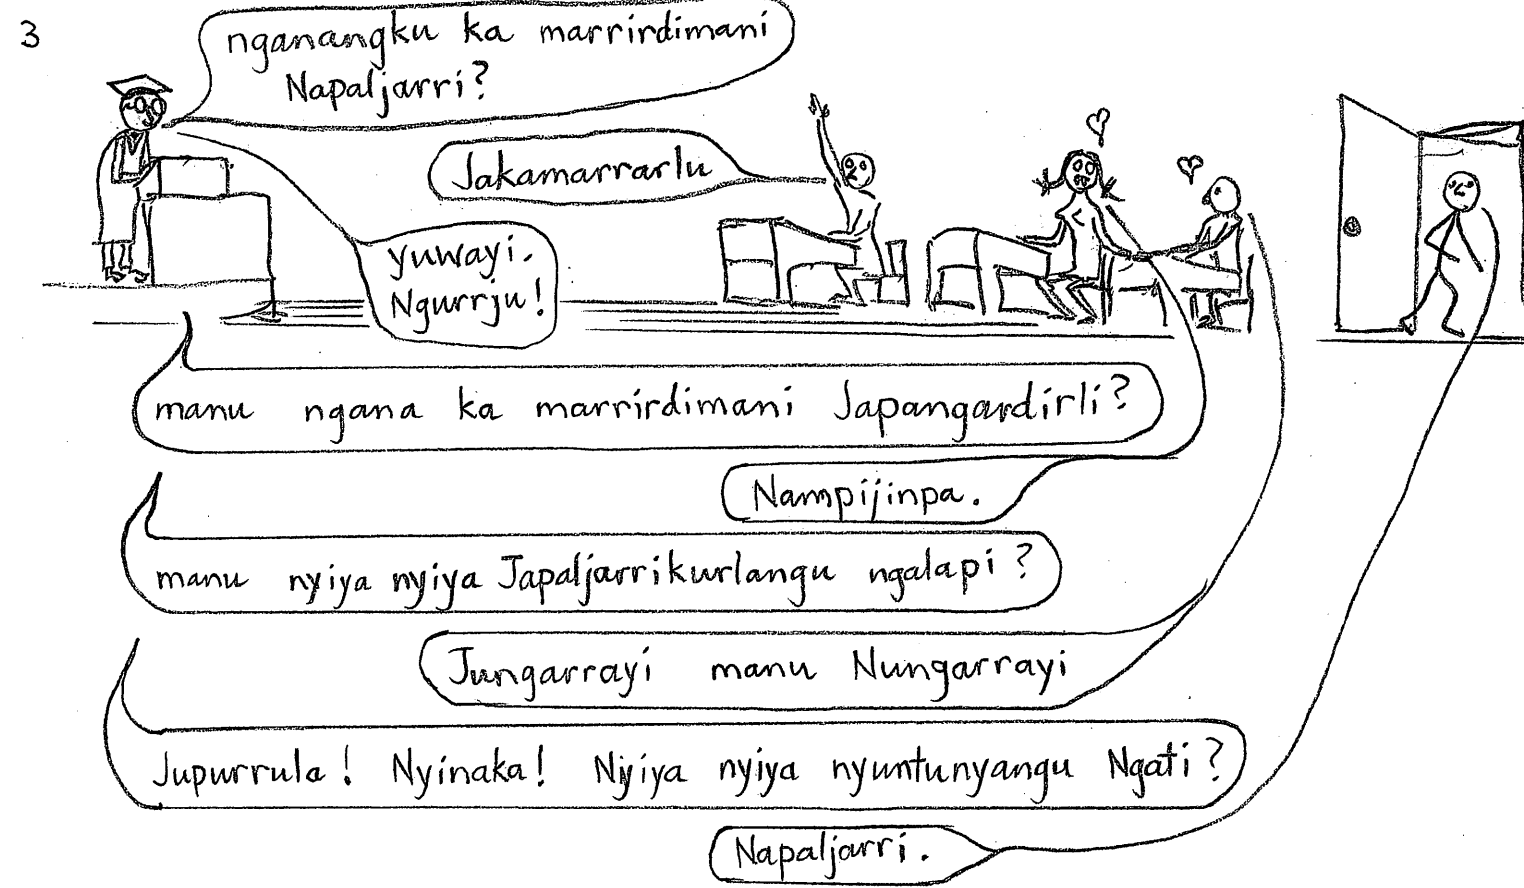 3
nganangku ka marrirdimani
Napaljarri?
Jakamarrarlu
yuwayi.
Ngurrju!
manu ngana ka marrirdimani Japangardirli?
Nampijinpa.
manu nyiya nyiya Japaljarrikurlangu ngalapi?
Jungarrayi manu Nungarrayi
Jupurrula! Nyinaka! Nyiya nyiya nyuntunyangu Ngati?
Napaljarri.